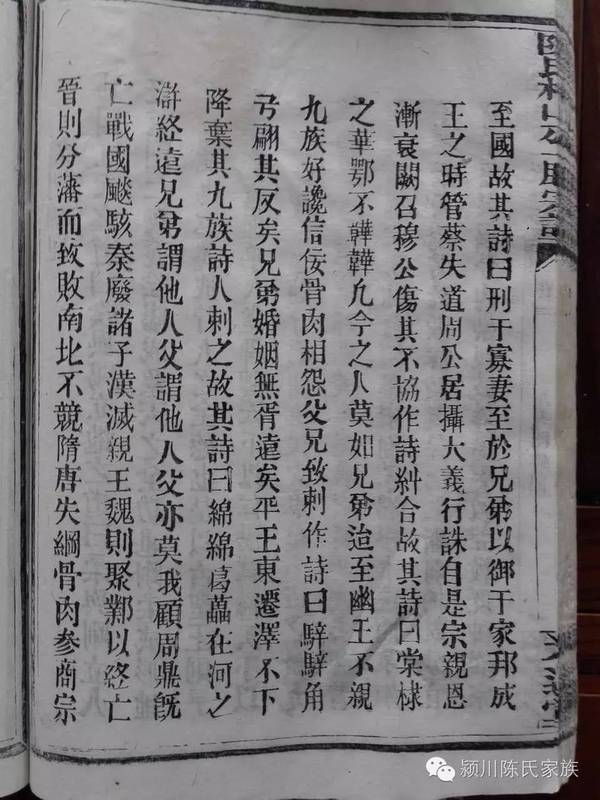 至國故其詩曰刑于寡妻至於兄弟以御于家邦成
王之時管蔡失道周公居攝大義行誅自是宗親恩
漸衰闕召穆公傷其不協作詩糾合故其詩曰棠棣
之華鄂不韡韡凡今之人莫如兄弟迨至幽王不親
九族好讒信佞骨肉相怨父兄致刺作詩曰騂騂角
弓翩其反矣兄弟婚姻無胥遠矣平王東遷澤不下
降棄其九族詩人刺之故其詩曰綿綿葛藟在河之
滸終遠兄弟謂他人父謂他人父亦莫我顧周鼎旣
亡戰國飈駭秦廢諸子漢滅親王魏則聚鄴以終亡
晉則分藩而致敗南北不競隋唐失綱骨肉參商宗
颍川陈氏家族